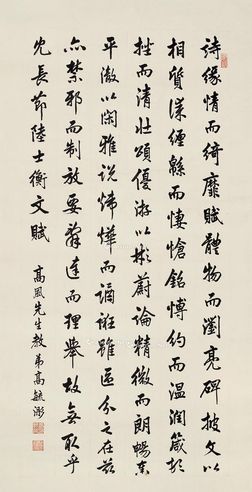 詩緣情而綺靡賦體物而瀏亮碑披文以
相質誄纏綿而悽愴銘博約而温潤箴頓
挫而清壯頌優游以彬蔚論精微而朗暢奏
平澈以閑雅説煒燁而譎誑雖區分之在兹
亦禁邪而制放要辭達而理舉故無取乎
冗長節陸士衡文賦 高風先生教弟高毓浵